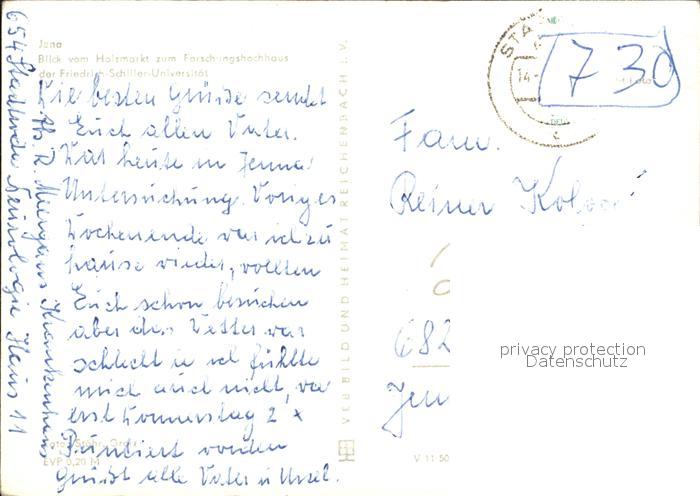 Jena
Blick vom Holzmarkt zum Forschungshochhaus
der Friedrich-Schiller-Universität
Die besten Grüße sendet
Euch allen Vater.
War heute in Jenna
Untersuchung. Voriges
Wochenende war ich zu
hause wieder, wollten
Euch schon besuchen
aber das Wetter war
schlecht u ich fühlte
mich auch nicht, war
erst Donnerstag 2 x
Punktiert worden
Grüßt alle Vater u Ursel.
Foto: Stöhr, Greiz
EVP 0,20 M
654 Stadtroda Neurologie Haus 11
Abs. R. Krankenhaus
VEB BILD UND HEIMAT REICHENBACH I. V.
STA
14.
730
Fam.
Reiner
682
Jen
V 11 50
privacy protection
Datenschutz